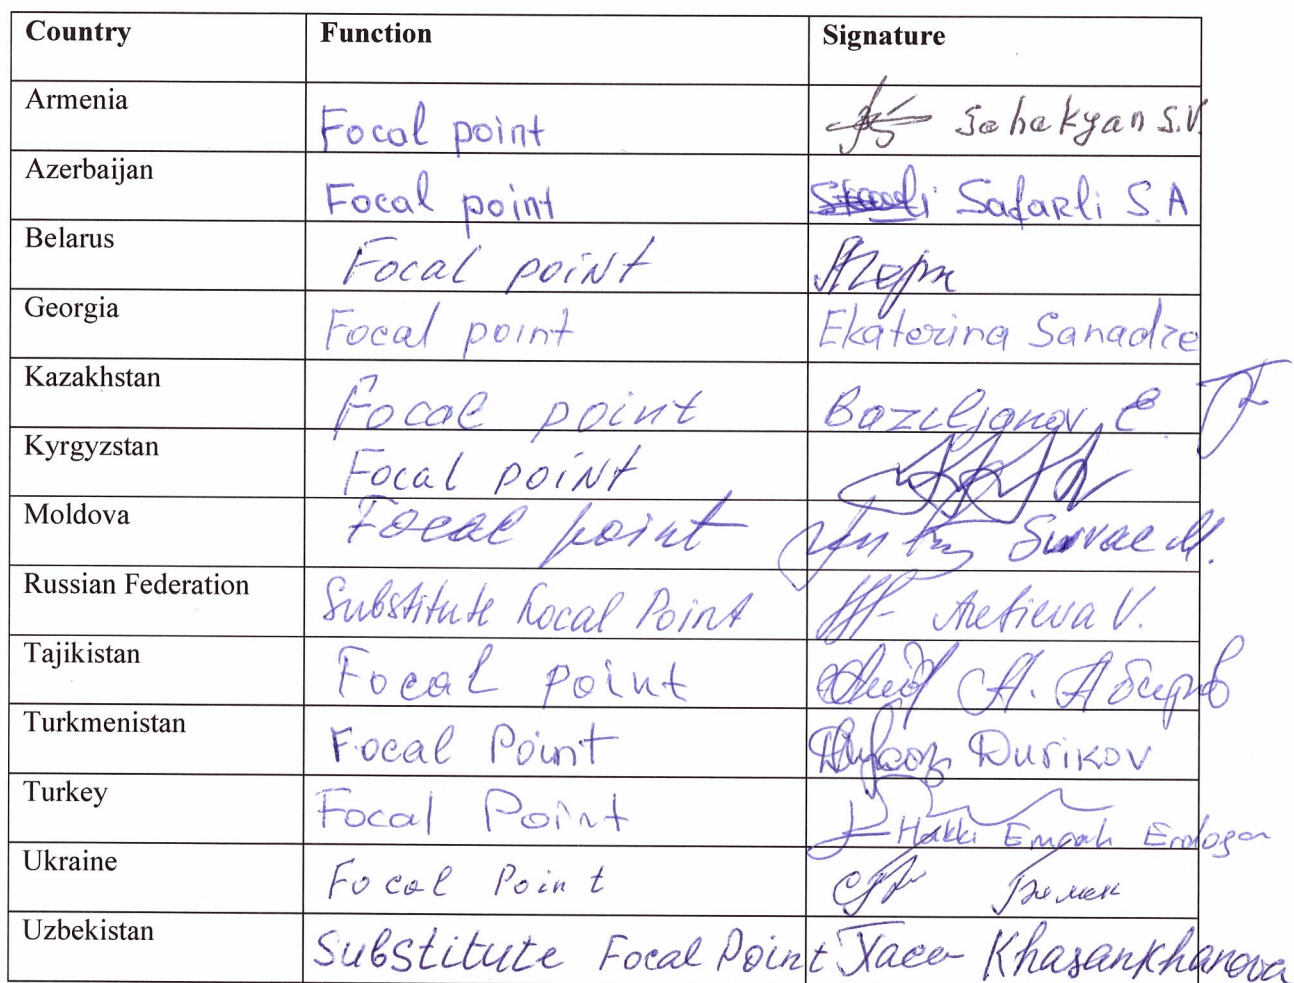 Country Function Signature
Armenia Focal point Sahakyan S.V.
Azerbaijan Focal point Safarli S.A
Belarus Focal point
Georgia Focal point Ekaterina Sanadze
Kazakhstan Focal point Baziljanov E
Kyrgyzstan Focal point
Moldova Focal point M.
Russian Federation Substitute Focal Point V.
Tajikistan Focal point А.
Turkmenistan Focal Point Durikov
Turkey Focal Point Hakkı Emrah Erdogan
Ukraine Focal Point
Uzbekistan Substitute Focal Point Khasankhanova